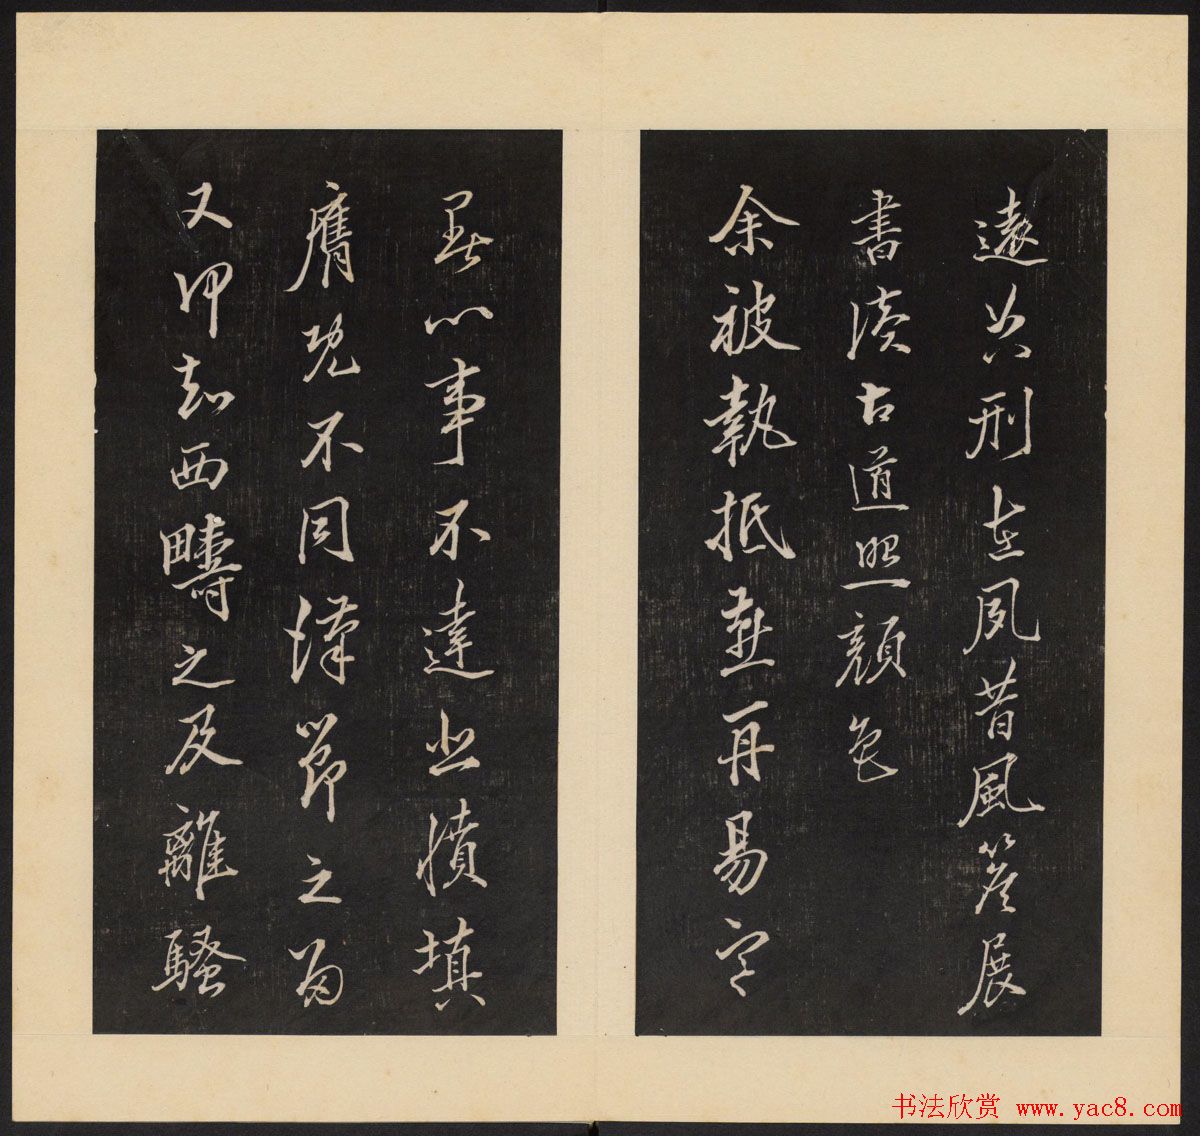 遠典刑在夙昔風簷展
書讀古道照顏色
余被執抵燕再易寒
暑心事不達悲憤填
膺既不同漢節之留
又知西疇之及離騷
书法欣赏 www.yac8.com